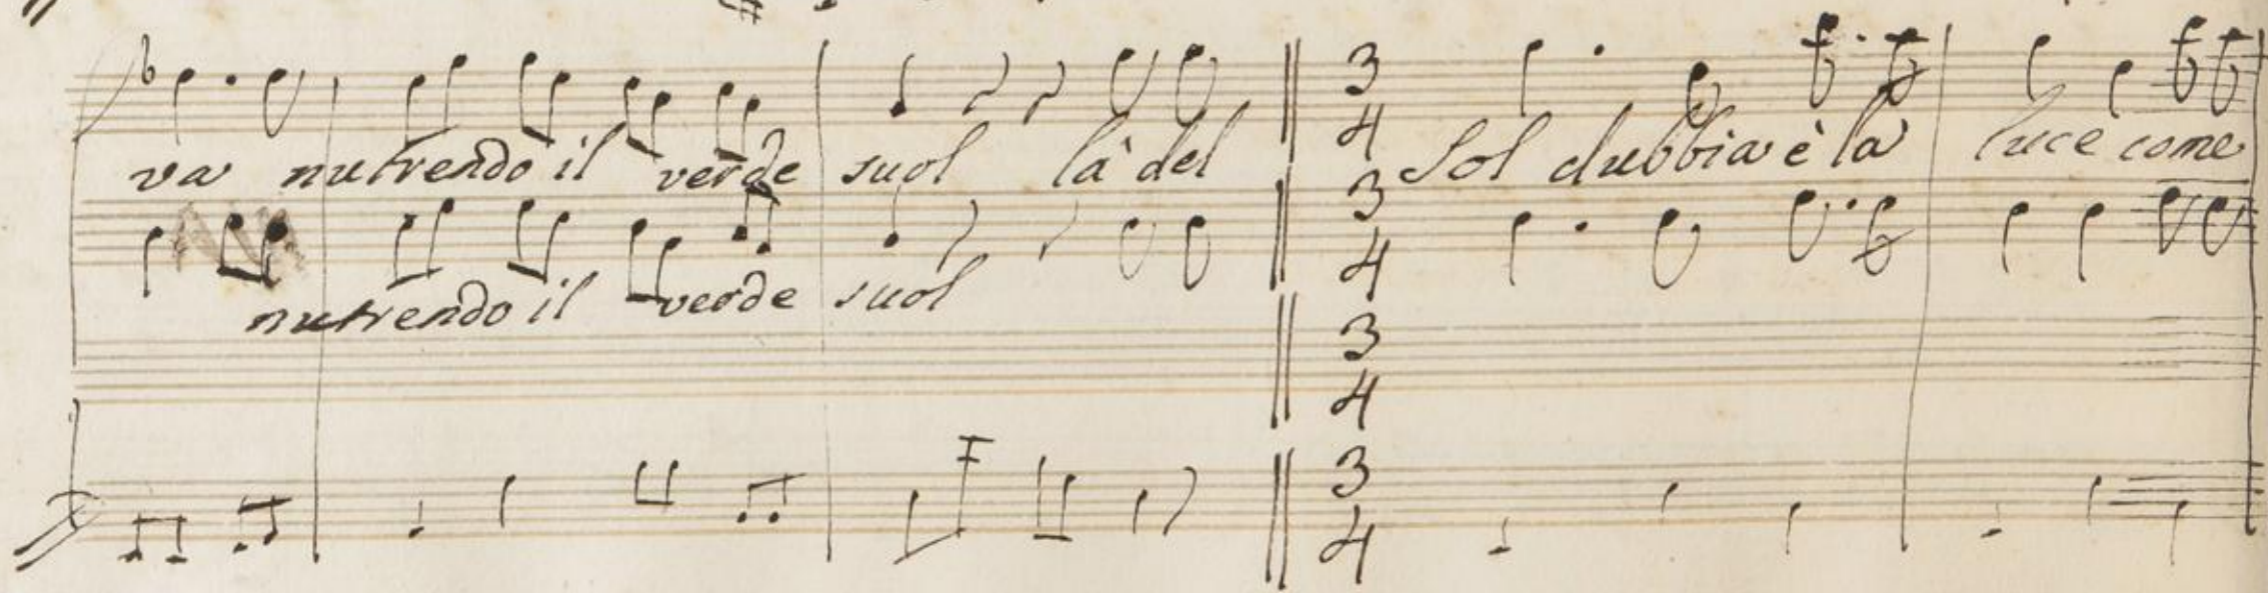 va nutrendo il verde suol là del Sol dubbia è la luce come
nutrendo il verde suol
3 4
3 4
3 4
3 4